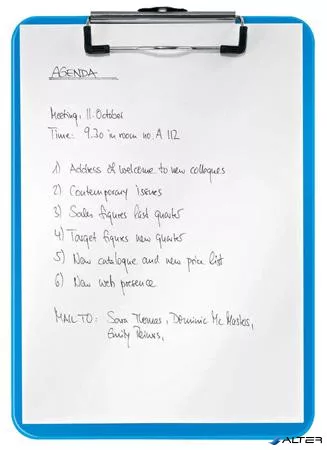 AGENDA
Meeting: 11. October
Time: 9.30 in room no. A 112
1) Address of welcome to new collegues
2) Contemporary issues
3) Sales figures last quarter
4) Target figures new quarter
5) New catalogue and new price list
6) New web presence
MAIL TO: Sara Thomas, Dominic Mc
Emily
ALTER